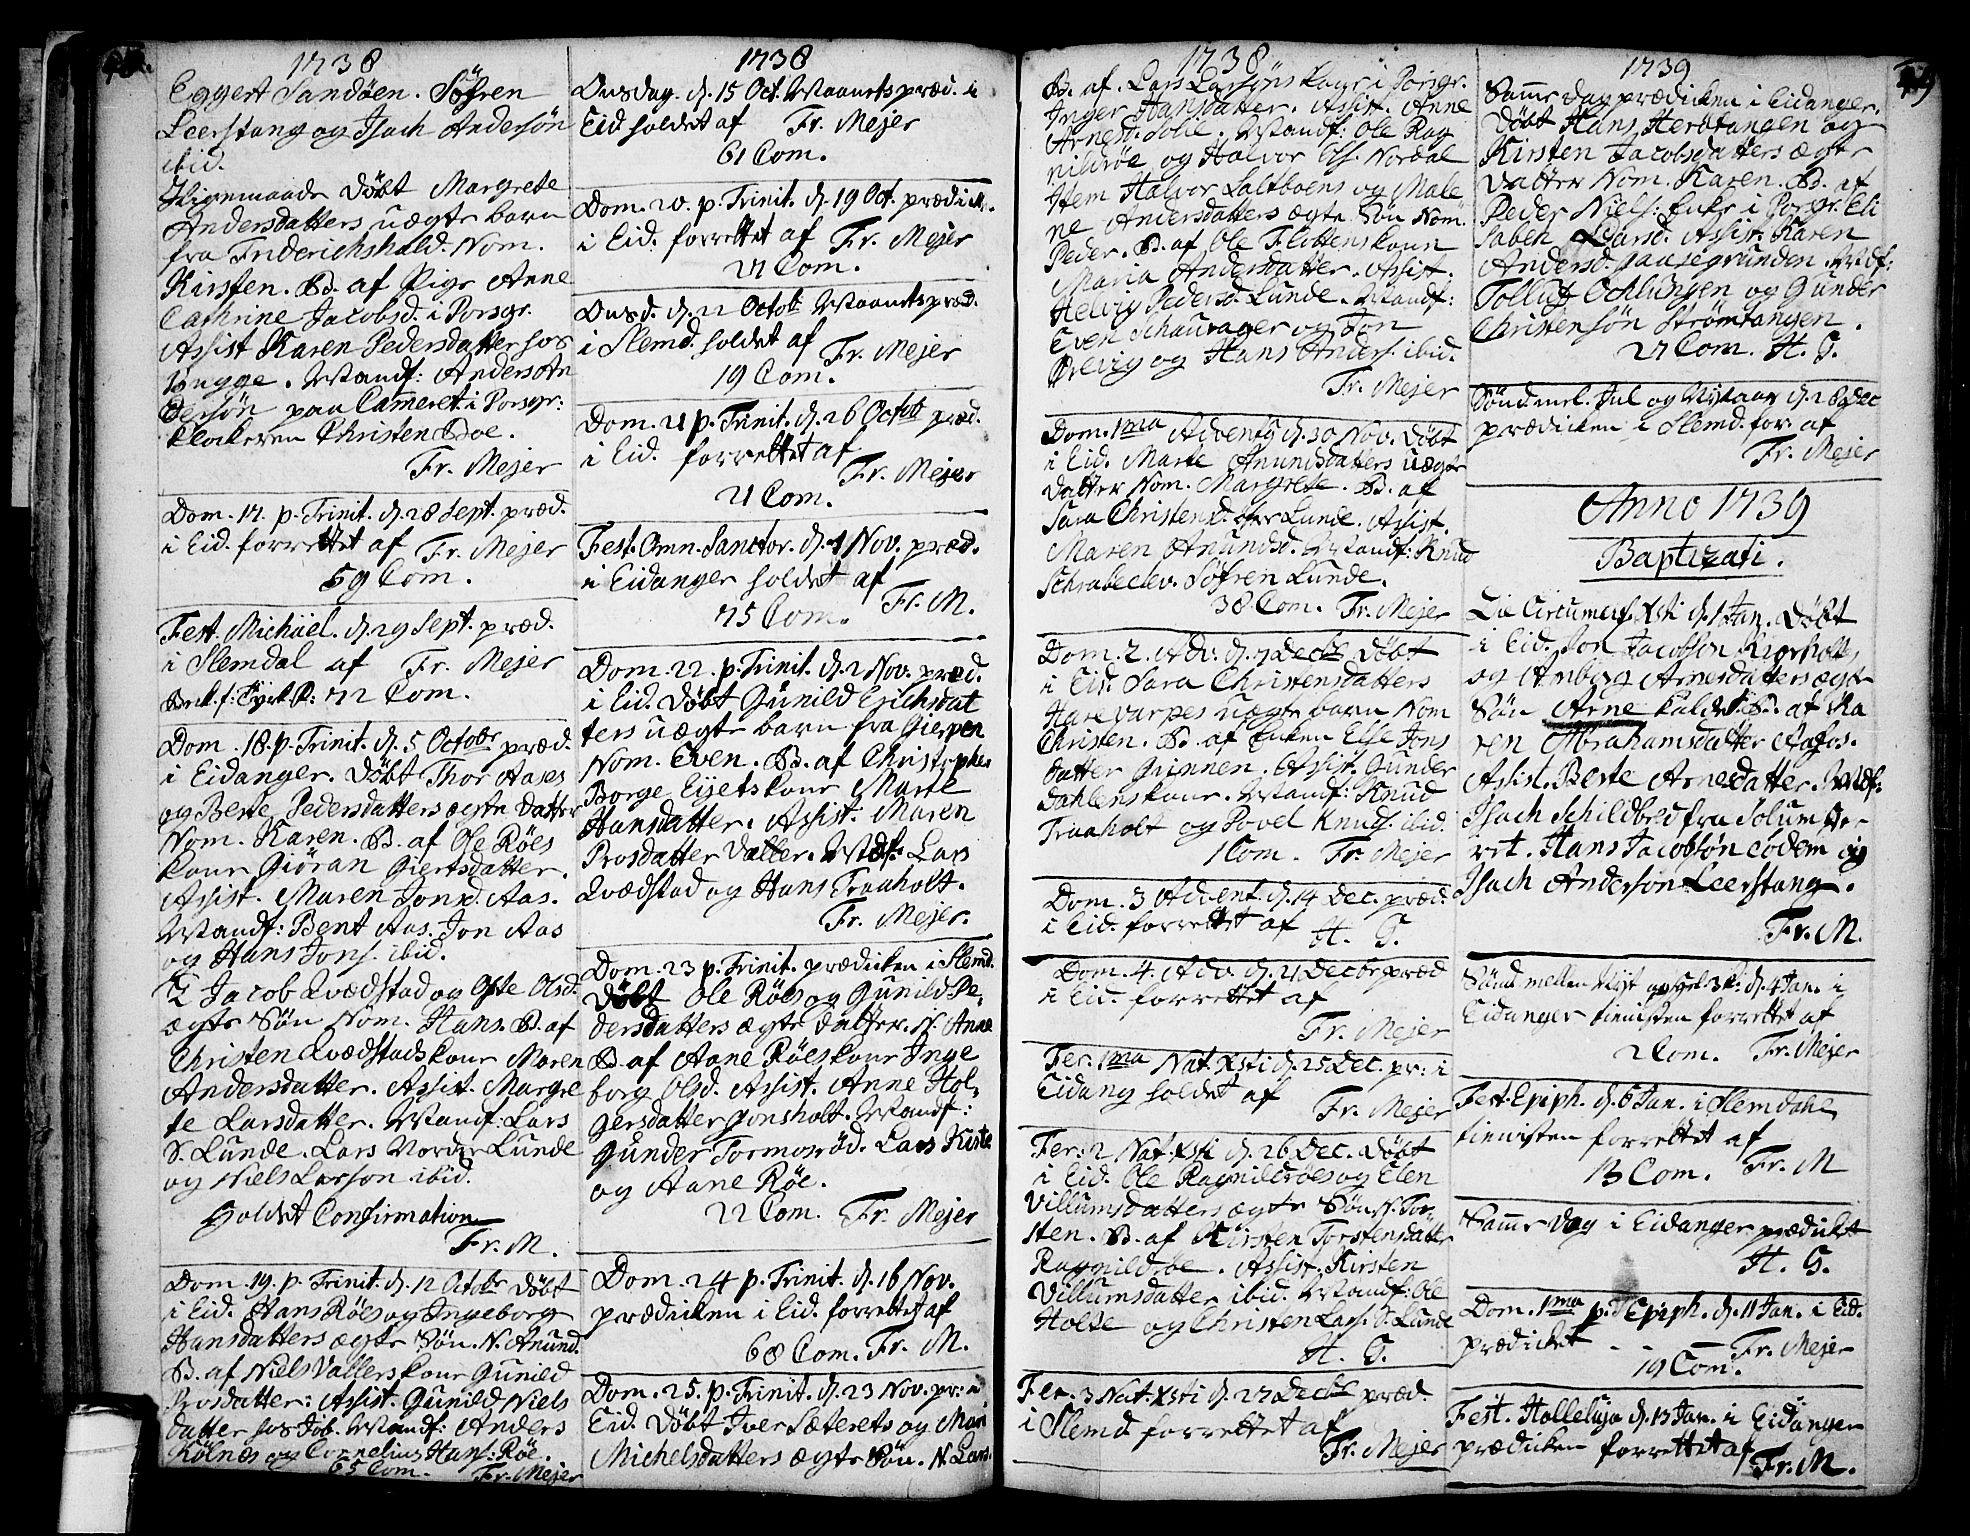 1738
Eggert Sandöen. Söfren
Leerstang og Isach Andersön
ibid.
Ligemaade döbt Margrete
Andersdatters uægte barn
fra Friderichshald. Nom.
Kirsten. Bd. af Pige Anne
Cathrine Jacobsd. i Porsgr.
Assist Karen Pedersdatter hos
Bugge. Wtandf: Anders An
dersön paa Cameret i Porsgr:
klockeren Christen Boe.
Fr. Mejer
Dom. 17. p. Trinit. d. 28 Sept. præd.
i Eid. forrettet af Fr. Mejer
59 Com.
Fest. Michael. d. 29 Sept. præd.
i Slemdal af Fr. Mejer
72 Com.
Dom. 18. p. Trinit. d. 5 Octobr præd.
i Eidanger. Döbt Thor Aases
og Berte Pedersdatters ægte datter
Nom. Karen. Bd. af Ole Röes
kone Giöran Giertsdatter.
Assist. Maren Jonsd. Aas.
Wtandf: Bent Aas. Jon Aas
og Hans Jons. ibid.
It Jacob Qvædstad og Gste Olsd.
ægte Sön Nom. Hans. Bd. af
Christen Qvædstads kone Maren
Andersdatter. Assist. Margre
te Larsdatter. Wtandf: Lars
S. Lunde. Lars Nordre Lunde
og Niels Larson ibid.
Holdet Confirmation
Fr. M.
Dom. 19. p. Trinit. d. 12 Octobr Döbt
i Eid. Hans Röes og Ingeborg
Hansdatters ægte Sön. N. Anund.
Bd. af Niels Vallers kone Gunild
Prosdatter: Assist. Gunild Niels
datter hos Job. Wtandf: Anders
Kölnes og Cornelius Hans: Röe.
65 Com. Fr: Mejer
1738
Onsdag. d. 15 Oct. Maanetspræd. i
Eid holdet af Fr. Mejer
61 Com.
Dom. 20. p. Trinit. d. 19 Oct. prædick.
i Eid. forrettet af Fr. Mejer
27 Com.
Onsd. d. 22 Octob Maanetspræd.
i Slemd. holdet af
Fr. Mejer
19 Com.
Dom. 21 p. Trinit. d. 26 Octob præd.
i Eid. forrettet af
Fr. Mejer
21 Com.
Fest. Omn. Sanctor. d. 1 Nov. præd.
i Eidanger holdet af
75 Com. Fr. M.
Dom. 22. p. Trinit. d. 2 Nov. præd.
i Eid. Döbt Gunild Erichsdat
ters uægte barn fra Gierpen
Nom. Even. Bd. af Christopher
Borge Eijets kone Marte
Hansdatter. Assist. Maren
Prosdatter Valler. Wtdf: Lars
Qvædstad og Hans Traaholt.
Fr. Mejer.
Dom. 23 p. Trinit. prædicken i Slemd.
Döbt Ole Röes og Gunild Pe,
dersdatters ægte datter. N. Anne
Bd af Aane Röes kone Inge
borg Olsd. Assist. Anne Hol,
gersdatter Jonsholt. Wtandf:
Gunder Tormosröd. Lars Kiste
og Aane Röe.
22 Com. Fr. Mejer
Dom. 24 p. Trinit. d. 16 Nov.
prædicken i Eid. forrettet af
68 Com. Fr. M.
Dom. 25. p. Trinit. d. 23 Nov. pr: i
Eid. Döbt Iver Sæterets og Mari
Michelsdatters ægte Sön. N. Lars.
1738
Bd. af. Lars Larsöns kone i Porsgr.
Inger Hansdatter. Assist. Anne
Arnesd. Solie. Wtandf: Ole Rag
nildröe og Halvor Els. Nordal
Item Halvor Saltboens og Male
ne Andersdatters ægte Sön Nom.
Peder. Bd. af Ole Flottens kone
Maria Andersdatter. Assist.
Helvig Pedersd. Lunde. Wtandf:
Even Schavager og Jon
Ørevig og Hans Anders. ibid.
Fr. Mejer
Dom. 1ma Adventg d. 30 Nov. Döbt
i Eid. Marte Anundsdatters uægte
datter Nom. Margrete. Bd. af
Sara Christensd. övr Lunde. Assist.
Maren Anundsd. Wtandf: Knud
Schrabeclev. Söfren Lunde.
38 Com. Fr. Mejer
Dom. 2. Adv. d. 7 Decbr Döbt
i Eid. Sara Christensdatters
Harevarpes uægte barn Nom
Christen. Bd. af Enken Else Jons
datter Grinnen. Assist. Gunder
Dahlens kone. Wtandf: Knud
Traaholt og Povel Knuds. ibid.
1 Com. Fr. Mejer
Dom. 3 Advent. d. 14 Dec. præd.
i Eid. forrettet af H. G.
Dom. 4. Adv. d. 21 Decbr præd
i Eid. forrettet af
Fr. Mejer
Fer. 1ma Nat. Xsti d. 25 Dec. pr: i
Eidang holdet af
Fr. Mejer
Fer: 2 Nat. Xsti d. 26 Dec. Döbt
i Eid. Ole Ragnildröes og Elen
Villumsdatters ægte Sön. N. Tor,
sten. Bd. af Kirsten Torstensdatter
Ragnildröe. Assist. Kirsten
Villumsdatter ibid. Wtandf: Ole
Holte og Christen Lars. S. Lunde
H. G.
Fer. 3 Nat. Xsti d. 27 Decbr præd.
i Slemd forrettet af
Fr. Mejer
1739
Samme dag prædicken i Eidanger.
Döbt Hans Herötangen og
Kirsten Jacobsdatters ægte
datter Nom. Karen. Bd. af
Peder Niels: Enke i Porsgr. Eli
sabeh Larsd. Assist. Karen
Andersd. paa Jegrunden. Wtdf:
Tolluf Ochlungen og Gunder
Christensön Strömtangen.
27 Com. H. G.
Sönd. mel. Jul og Nytaar d. 28 Dec
prædicken i Slemd. for: af
Fr. Mejer
Anno 1739
Baptizati.
Die Circumcis. Xsti d. 1 Jan. Döbt
i Eid. Jon Jacobson Kiorholts
og Anborg Arnesdatters ægte
Sön Arne kaldet. Bd. af Ka
ren Abrahamsdatter Aafos.
Assist. Berte Arnesdatter. Wtdf:
Isach Schilbred fra Solum Her
ret. Hans Jacobsön eodem og
Isach Anderson Leerstang.
Fr. M.
Sönd mellem Nyt og Hel. 3 K: d. 4 Jan. i
Eidanger tienisten forrettet af
2 Com. Fr. Mejer
Fest. Epiph. d. 6 Jan. i Slemdahl
tienisten forrettet af
13 Com. Fr. M
Samme dag i Eidanger prædicket
H. G.
Dom. 1ma p. Epiph. d. 11 Jan. i Eid.
prædicket - - Fr. Mejer
19 Com.
Fest. Halleluja d. 13 Jan. i Eidanger
prædicken forrettet af
Fr. M.